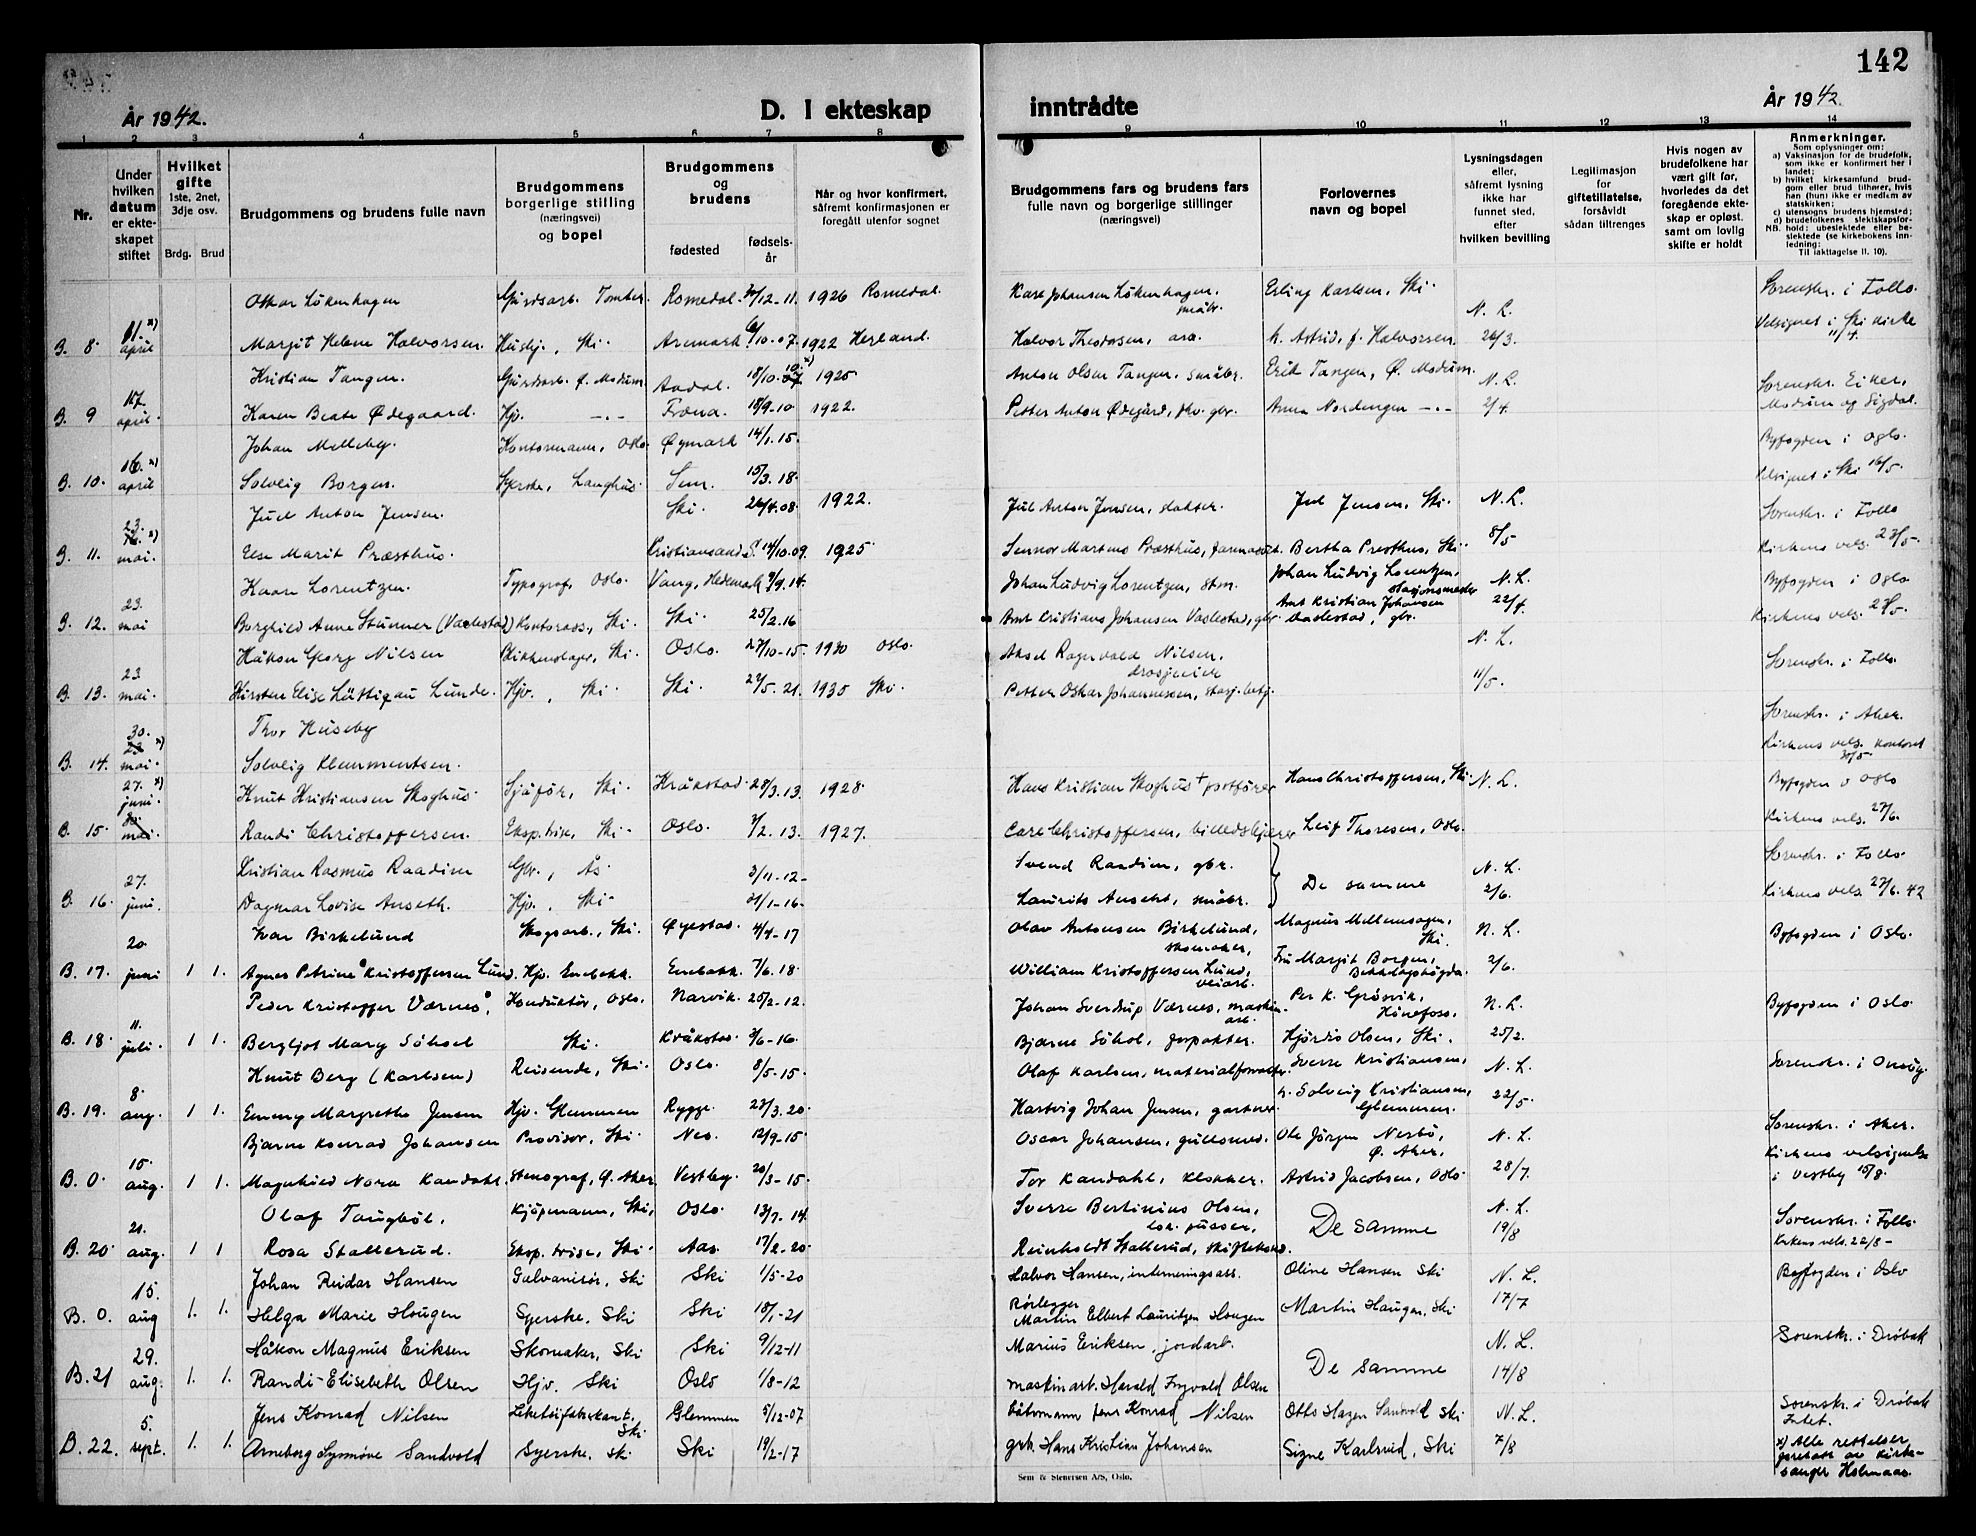 142
År 1942.
D. I ekteskap inntrådte
År 1942.
1 2 3 4 5 6 7 8 9 10 11 12 13 14
Nr.
Under hvilken datum er ekteskapet stiftet
Hvilket gifte 1ste, 2net, 3dje osv.
Brdg. Brud
Brudgommens og brudens fulle navn
Brudgommens borgerlige stilling (næringsvei) og bopel
Brudgommens og brudens
fødested fødsels-år
Når og hvor konfirmert, såfremt konfirmasjonen er foregått utenfor sognet
Brudgommens fars og brudens fars fulle navn og borgerlige stillinger (næringsvei)
Forlovernes navn og bopel
Lysningsdagen eller, såfremt lysning ikke har funnet sted, efter hvilken bevilling
Legitimasjon for giftetillatelse, forsåvidt sådan tiltrenges
Hvis nogen av brudefolkene har vært gift før, hvorledes da det foregående ekteskap er opløst. samt om lovlig skifte er holdt
Anmerkninger.
Som oplysninger om:
a) Vaksinasjon for de brudefolk, som ikke er konfirmert her i landet;
b) hvilket kirkesamfund brudgom eller brud tilhører, hvis han (hun) ikke er medlem av statskirken;
c) utensogns brudens hjemsted;
d) brudefolkenes slektskapsforhold: ubeslektede eller beslektede (se kirkebokens innledning:
NB.
Til iakttagelse II. 10).
Oskar Løkenhagen Gårdsarb. Tomter. Romedal. 12-11. 1926 Romedal. Kare Johansen Løkenhagen, småbr. Erling Karlsen, Ski. N. L. Sorenskr. i Follo.
B. 8. 11. x) april Margit Helene Halvorsen. Hushj., Ski. Aremark 6/10-07. 1922 Herland. Halvor Theodorsen, arb. h. Astrid, f. Halvorsen. 26/3. Velsignet i Ski kirke 11/4.
Kristian Tangen. Gårdsarb. f. Modum. Aadal. 18/10. 1925 Anton Olsen Tangen, småbr. Erik Tangen, Ø. Modum. N. L. Sorenskr. Eiker,
B. 9 17. april. Karen Beate Ødegaard. Hj. -.- 18/9-10 1922. Petter Anton Ødegård, gbr. Anna Nordengen -.- 2/4. Modum og Sigdal.
Johan Melleby. Kontormann, Oslo. Øymark 14/1.15. Byfogden i Oslo.
B. 10. 16. x) april Solveig Borgen. Langhus. Sem. 15/3.18. Velsignet i Ski 16/5.
Juel Anton Jensen. Ski. 26/4.08. 1922. Juel Anton Jensen, slakter. Juel Jensen, Ski. N. L. Sorenskr. i Follo
B. 11. 23. x) mai. Else Marit Præsthus. Kristiansand S. 14/10.09. 1925. Sennor Martens Præsthus, Bertha Presthus, Ski. 8/5 Kirkens vels. 23/5.
Kaare Lorentzen. Typograf, Oslo. Vang, Hedemark 9/9.14. Johan Ludvig Lorentzen, stm. Johan Ludvig Lorentzen, stasjonsmester N. L. Byfogden i Oslo
B. 12. 23. mai Borghild Anne Stunner (Vaslestad) Kontorass., Ski. Ski. 25/2.16 Arnt Kristians Johansen Vaslestad, gbr. Arnt Kristian Johansen Vaslestad, gbr. 22/4. Kirkens vels. 23/5.
Håkon Georg Nilsen Blikkenslager, Ski. Oslo. 27/10-15. 1930 Oslo. Aksel Ragnvald Nilsen, drosjeeier N. L. Sorenskr. i Follo
B. 13. 23 mai. Kirsten Elise Lüttigau Lunde. Hjv., Ski. Ski. 24/5.21. 1935 Ski. Petter Oskar Johannessen, stasj.betj. 11/5.
Thor Huseby Sorenskr. i Aker.
B. 14. 30. 23. x) mai. Solveig Klemmentsen. Kirkens vels. kontoret 30/5
Knut Kristiansen Skoghus Sjåfør, Ski. Kråkstad. 28/3.13. 1928. Hans Kristian Skoghus + postfører Hans Christoffersen, Ski. N. L. Byfogden i Oslo
B. 15. 27. x) juni. Randi Christoffersen. Eksp.trise, Ski. Oslo. 7/2.13. 1927. Carl Christoffersen, billedskjærer Leif Thoresen, Oslo. Kirkens vels. 27/6.
Kristian Rasmus Raadim Gbr., Ås 3/11-12- Svend Raadim, gbr. N. L. Sorenskr. i Follo
B. 16. 27. juni. Dagmar Lovise Anseth. Hjv., Ski. 21/1-16- Laurits Anseth, småbr. De samme 2/6. Kirkens vels. 27/6.42
Ivar Birkelund Skogsarb., Ski. Øyestad. 4/4-17 Olav Antonsen Birkelund, skomaker, Magnus Mellemsagen, Ski. N. L. Byfogden i Oslo.
B. 17. 20 juni 1 1. Agnes Petrine Kristoffersen Lund. Hjv. Enebakk. Enebakk. 7/6.18. William Kristoffersen Lund, veiarb. Fru Margit Borgen, Bekkelagshøgda. 2/6.
Peder Kristoffer Værnes. Konduktør, Oslo. Narvik. 25/2-12. Johan Sverdrup Værnes, maskinarb. Per K. Gråsvik, Hønefoss. N. L. Byfogden i Oslo.
B. 18. 11. juli. 1 1. Bergljot Mary Søhol Ski. Kråkstad. 3/6-16. Bjarne Søhol, forpakter. Hjørdis Olsen, Ski. 25/2.
Knut Berg (Karlsen) Reisende, Ski. Oslo. 8/5-15. Olaf Karlsen, materialforvalter. Sverre Kristiansen, N. L. Sorenskr. i Onsøy.
B. 19. 8. aug. 1 1. Emmy Margrethe Jensen Hjv. Glemmen Rygge. 23/3.20. Hartvig Johan Jensen, gartner. h. Solveig Kristiansen, Glemmen. 22/5.
Bjarne Konrad Johansen Provisor, Ski. Nes. 12/9-15. Oscar Johansen, gullsmed. Ole Jörgen Nesbö, Ø. Aker. N. L. Sorenskr. i Aker.
B. 0. 15. aug. 1 1. Magnhild Nora Kandahl. Stenograf, Ø. Aker Vestby. 20/3-15. Tor Kandahl, klokker. Astrid Jacobsen, Oslo. 28/7. Kirkens velsignelse i Vestby 15/8.
Olaf Taugböl. Kjöpmann, Ski, Oslo. 13/7.14. Sverre Bertinius Olsen, lok. pusser, N. L. Sorenskr. i Follo
B. 20. 21. aug. 1 1 Rosa Stallerud. Eksp. trise, Ski. Aas. 17/2-20. Reinholdt Stallerud, De samme 19/8 Kirkens vels. 22/8-
Johan Reidar Hansen Galvanisör, Ski Ski 1/5-20 Halvor Hansen, interneringsass. Oline Hansen Ski N. L. Byfogden i Oslo
B. 0. 15. aug 1. 1. Helga Marie Haugen Syerske, Ski Ski 18/1-21 Rörlegger Martin Elbert Lauritzen Haugen Martin Haugen, Ski 17/7
Håkon Magnus Eriksen Skomaker, Ski Ski 9/12-11 Marius Eriksen, jordarb. N. L. Sorenskr. i Drøbak
B. 21 29. aug. 1. 1. Randi-Elisabeth Olsen Hjv. Ski Oslo 1/8-12 maskinarb. Harald Ingvald Olsen De samme 14/8
Jens Konrad Nilsen Leketöifabrikant, Ski Glemmen 5/12-07 Jens Konrad Nilsen Otto Hagen Sandvold Ski N. L. Sorenskr. i Drøbak
B. 22. 5. sept. 1. 1. Arneborg Synnöve Sandvold Syerske, Ski Ski 19/2-17 grb. Hans Kristian Johansen Signe Karlsrud, Ski 7/8
x) Alle rettelser foretatt av kirkesanger Holmaas.
Sem & Stenersen A/S, Oslo.